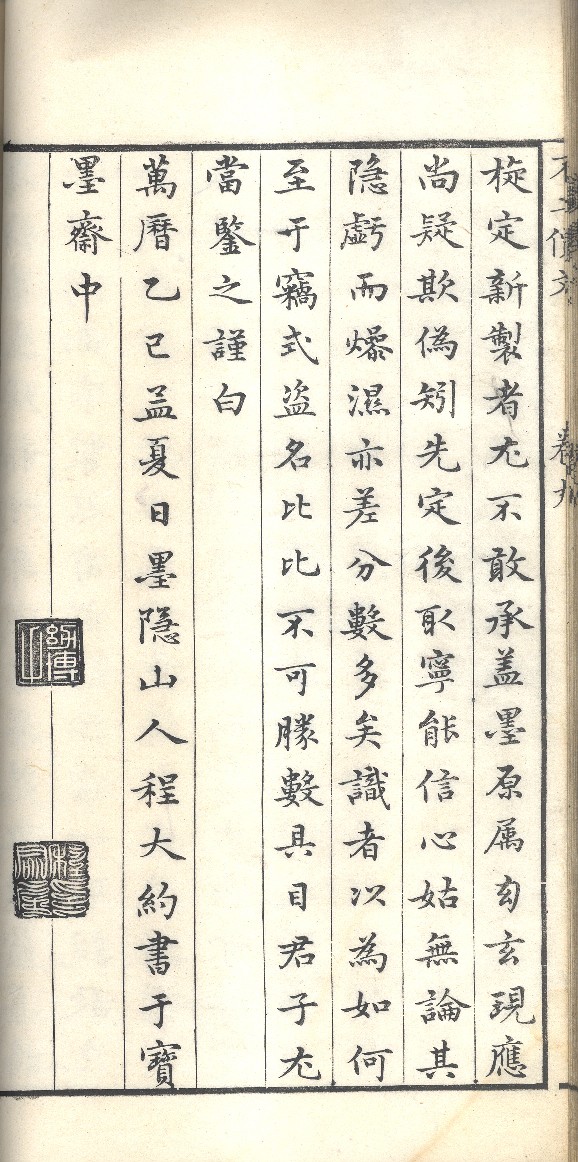 旋定新製者尤不敢承盖墨原属勾玄現應
尚疑欺偽矧先定後取寧能信心姑無論其
隐虧而燥濕亦差分數多矣識者以為如何
至于竊式盗名比比不可勝數具目君子尤
當鑒之謹白
萬曆乙巳孟夏日墨隐山人程大約書于寶
墨齋中
幼博